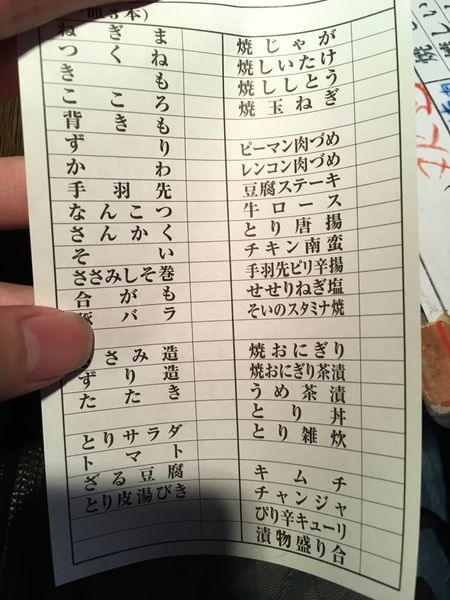 皿3本)
ねぎま
つくね
きも
こころ
背きも
ずり
かわ
手羽先
なんこつ
さんかく
そい
ささみしそ巻
合がも
豚バラ
さみ造
ずり造
たたき
とりサラダ
トマト
ざる豆腐
とり皮湯びき
焼じゃが
焼しいたけ
焼ししとう
焼玉ねぎ
ピーマン肉づめ
レンコン肉づめ
豆腐ステーキ
牛ロース
とり唐揚
チキン南蛮
手羽先ピリ辛揚
せせりねぎ塩
そいのスタミナ焼
焼おにぎり
焼おにぎり茶漬
うめ茶漬
とり丼
とり雑炊
キムチ
チャンジャ
ぴり辛キューリ
漬物盛り合